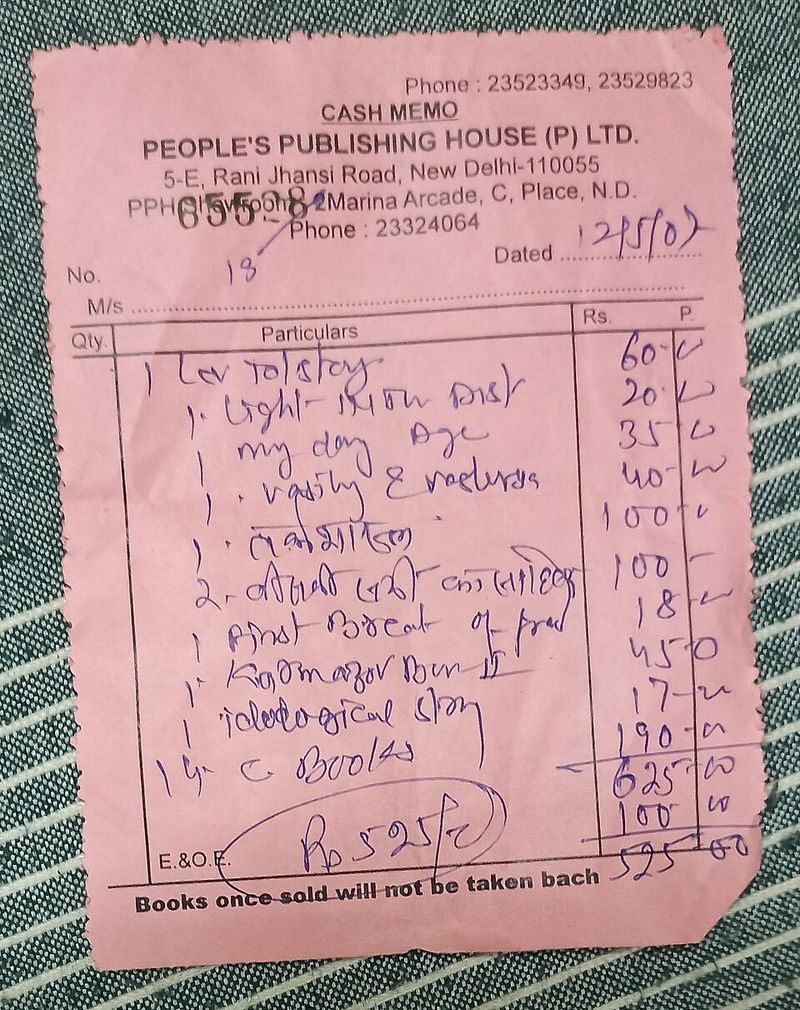 Phone : 23523349, 23529823
CASH MEMO
PEOPLE'S PUBLISHING HOUSE (P) LTD.
5-E, Rani Jhansi Road, New Delhi-110055
PPH 2 Marina Arcade, C, Place, N.D.
65528
Phone : 23324064
18
No.
Dated 12/5/07
M/s
Qty. Particulars Rs. P.
1 Lev Tolstoy 60-00
1. Light 20-00
1 my day Age 35-00
1. 40-00
1. 100-
2. 100-
1 First Breat of 18-00
1. 45-0
1 idological 17-00
14. C Books 190-00
625-00
100 00
Rs 525/-
525 00
E.&O.E.
Books once sold will not be taken bach